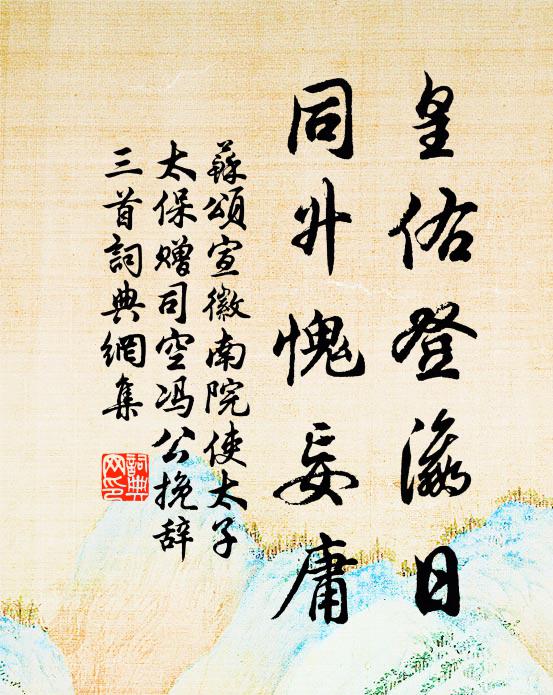 皇佑登瀛日
同升愧妄庸
蘇頌宣徽南院使太子
太保赠司空冯公挽辞
三首詞典網集
詞典网印